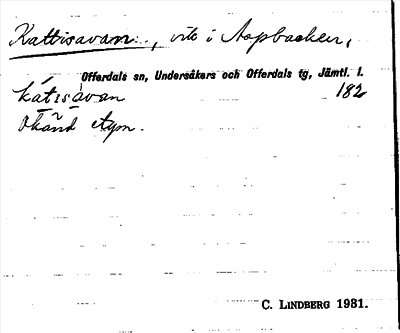 Kattisavan, vik i Aspbacken,
Offerdals sn, Undersåkers och Offerdals tg, Jämtl. l.
kátısávan 182
Okänd etym.
C. LINDBERG 1931.